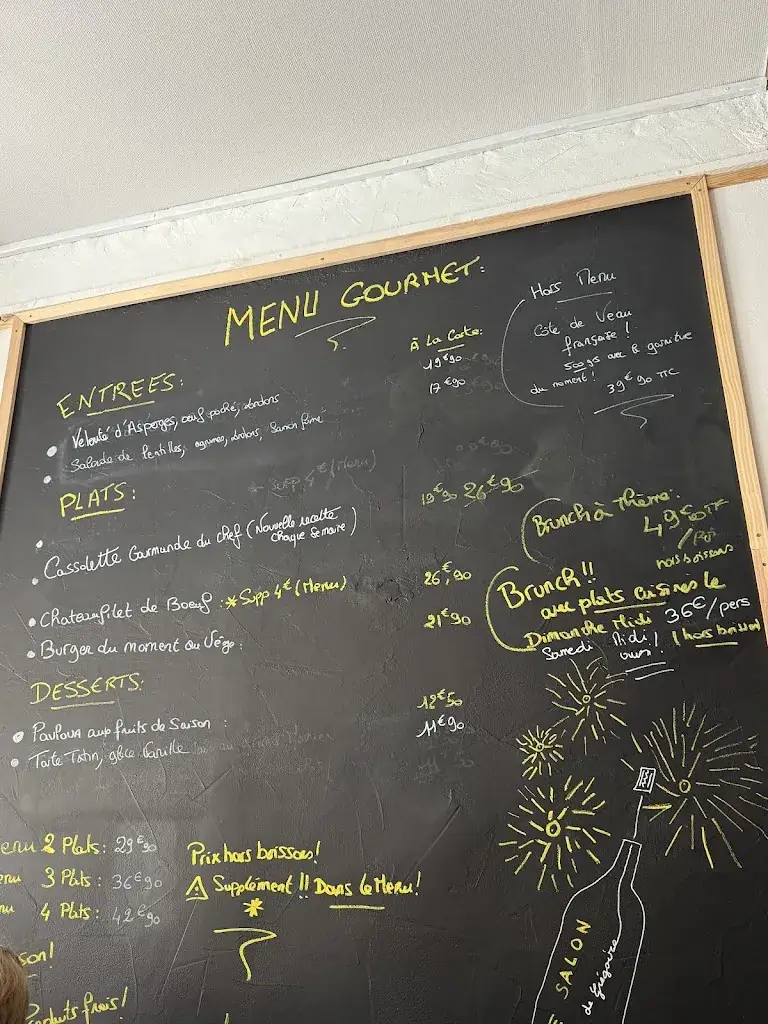 MENU GOURMET:
À La Carte:
ENTREES:
Velouté d'Asperges, oeuf poché, lardons
19€90
Salade de lentilles, agrumes, lardons, Saumon fumé
17€90
Hors Menu
Côte de Veau
française!
500grs avec la garniture
du moment!
39€90 TTC
PLATS:
* Supp 4€ (Menu)
19€90 26€90
Cassolette Gourmande du chef (Nouvelle recette
chaque semaine)
Chateaufilet de Boeuf: *Supp 4€ (Menu)
26€,90
Burger du moment ou Végé:
21€90
Brunch à thème:
49€00 TTC
/Pers
hors boissons
Brunch!!
avec plats cuisinés le
Dimanche Midi 36€/pers
Samedi Midi! (hors boisson)
DESSERTS:
Pavlova aux fruits de Saison:
12€50
Tarte Tatin, glace Vanille
11€90
enu 2 Plats: 29€90
enu 3 Plats: 36€90
nu 4 Plats: 42€90
Prix hors boissons!
⚠ Supplément!! Dans le Menu!
*
son!
oduits frais!
E SALON
de Grégoire